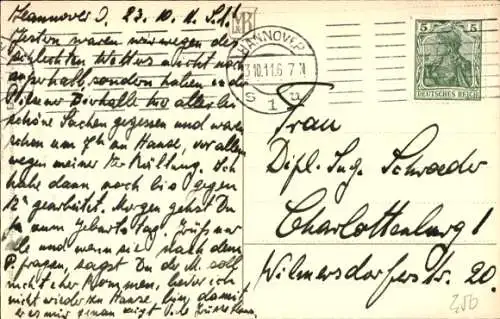 Hannover D. 23.10.11.
Gestern waren wir wegen des
schlechten Wetters nicht noch
außerhalb sondern haben in der
Pilsener Bierhalle wo allerlei
schöne Sachen gegessen und waren
schon um 7 h zu Hause, vor allem
wegen meiner Erkältung. Ich
habe dann noch bis gegen
12 h gearbeitet. Morgen gehst Du
ja zum Geburtstag. Grüß mir
alle und wenn sie nach dem
P. fragen, sagst Du der soll
nicht eher kommen, bevor ich
nicht wieder zu Hause bin, damit
er es mir zeigt
HANNOVER
23.10.11.6-7 N
1
5 5
DEUTSCHES REICH
Frau
Dipl. Ing. Schroeder
Charlottenburg 1
Wilmersdorferstr. 20.